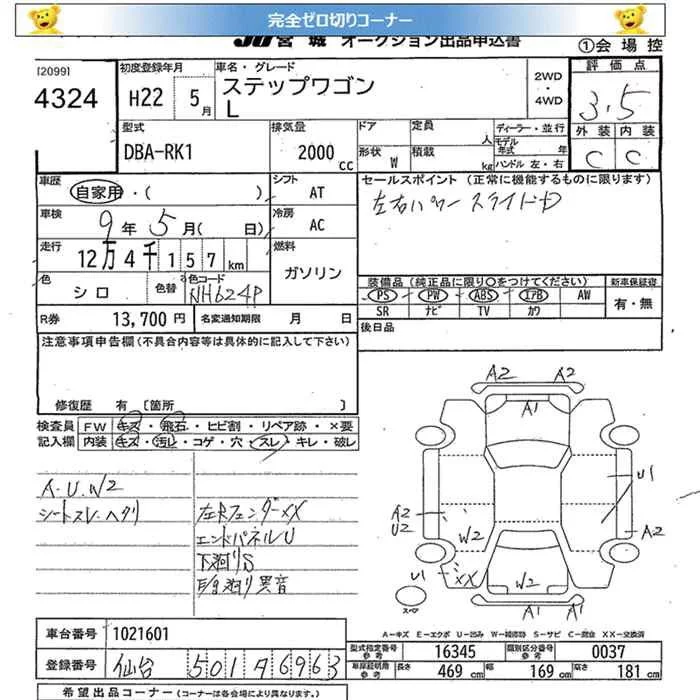 完全ゼロ切りコーナー
JU 宮城 オークション出品申込書
①会場控
[2099]
4324
初度登録年月
H22 5月
車名・グレード
ステップワゴン
L
2WD
・
4WD
評価点
3.5
外装 内装
C C
型式
DBA-RK1
排気量
2000cc
ドア 定員 人
形状 W 積載 kg
ディーラー・並行
モデル年式 年
ハンドル 左・右
車歴
自家用・( )
シフト AT
車検
9年 5月( 日)
冷房 AC
走行
12万4千157km
燃料
ガソリン
色
シロ
色替
色コード
NH624P
R券 13,700円
名変通知期限 月 日
セールスポイント (正常に機能するものに限ります)
左右パワースライドドア
装備品 (純正品に限り○をつけてください)
PS PW ABS エアB AW
SR ナビ TV カワ
新車保証書
有・無
後日品
注意事項申告欄(不具合内容等は具体的に記入して下さい)
修復歴 有 [箇所 ]
検査員記入欄
FW キズ・飛石・ヒビ割・リペア跡・×要
内装 キズ・汚レ・コゲ・穴・スレ・キレ・破レ
A.U.W2
シートスレ・ヘタリ
左右フェンダーXX
エンドパネルU
下廻りS
異音
A2 A2
A1
U1
A2
U2
W2
A2
U1
XX
W2
スペア
A1 A1
A-キズ E-エクボ U-凹み W-補修跡 S-サビ C-腐食 XX-交換済
車台番号 1021601
登録番号 仙台 501 6963
型式指定番号 参考 16345
類別区分番号 参考 0037
車庫証明用 参考 長さ 469cm 幅 169cm 高さ 181cm
希望出品コーナー (コーナーは各会場により異なります。)